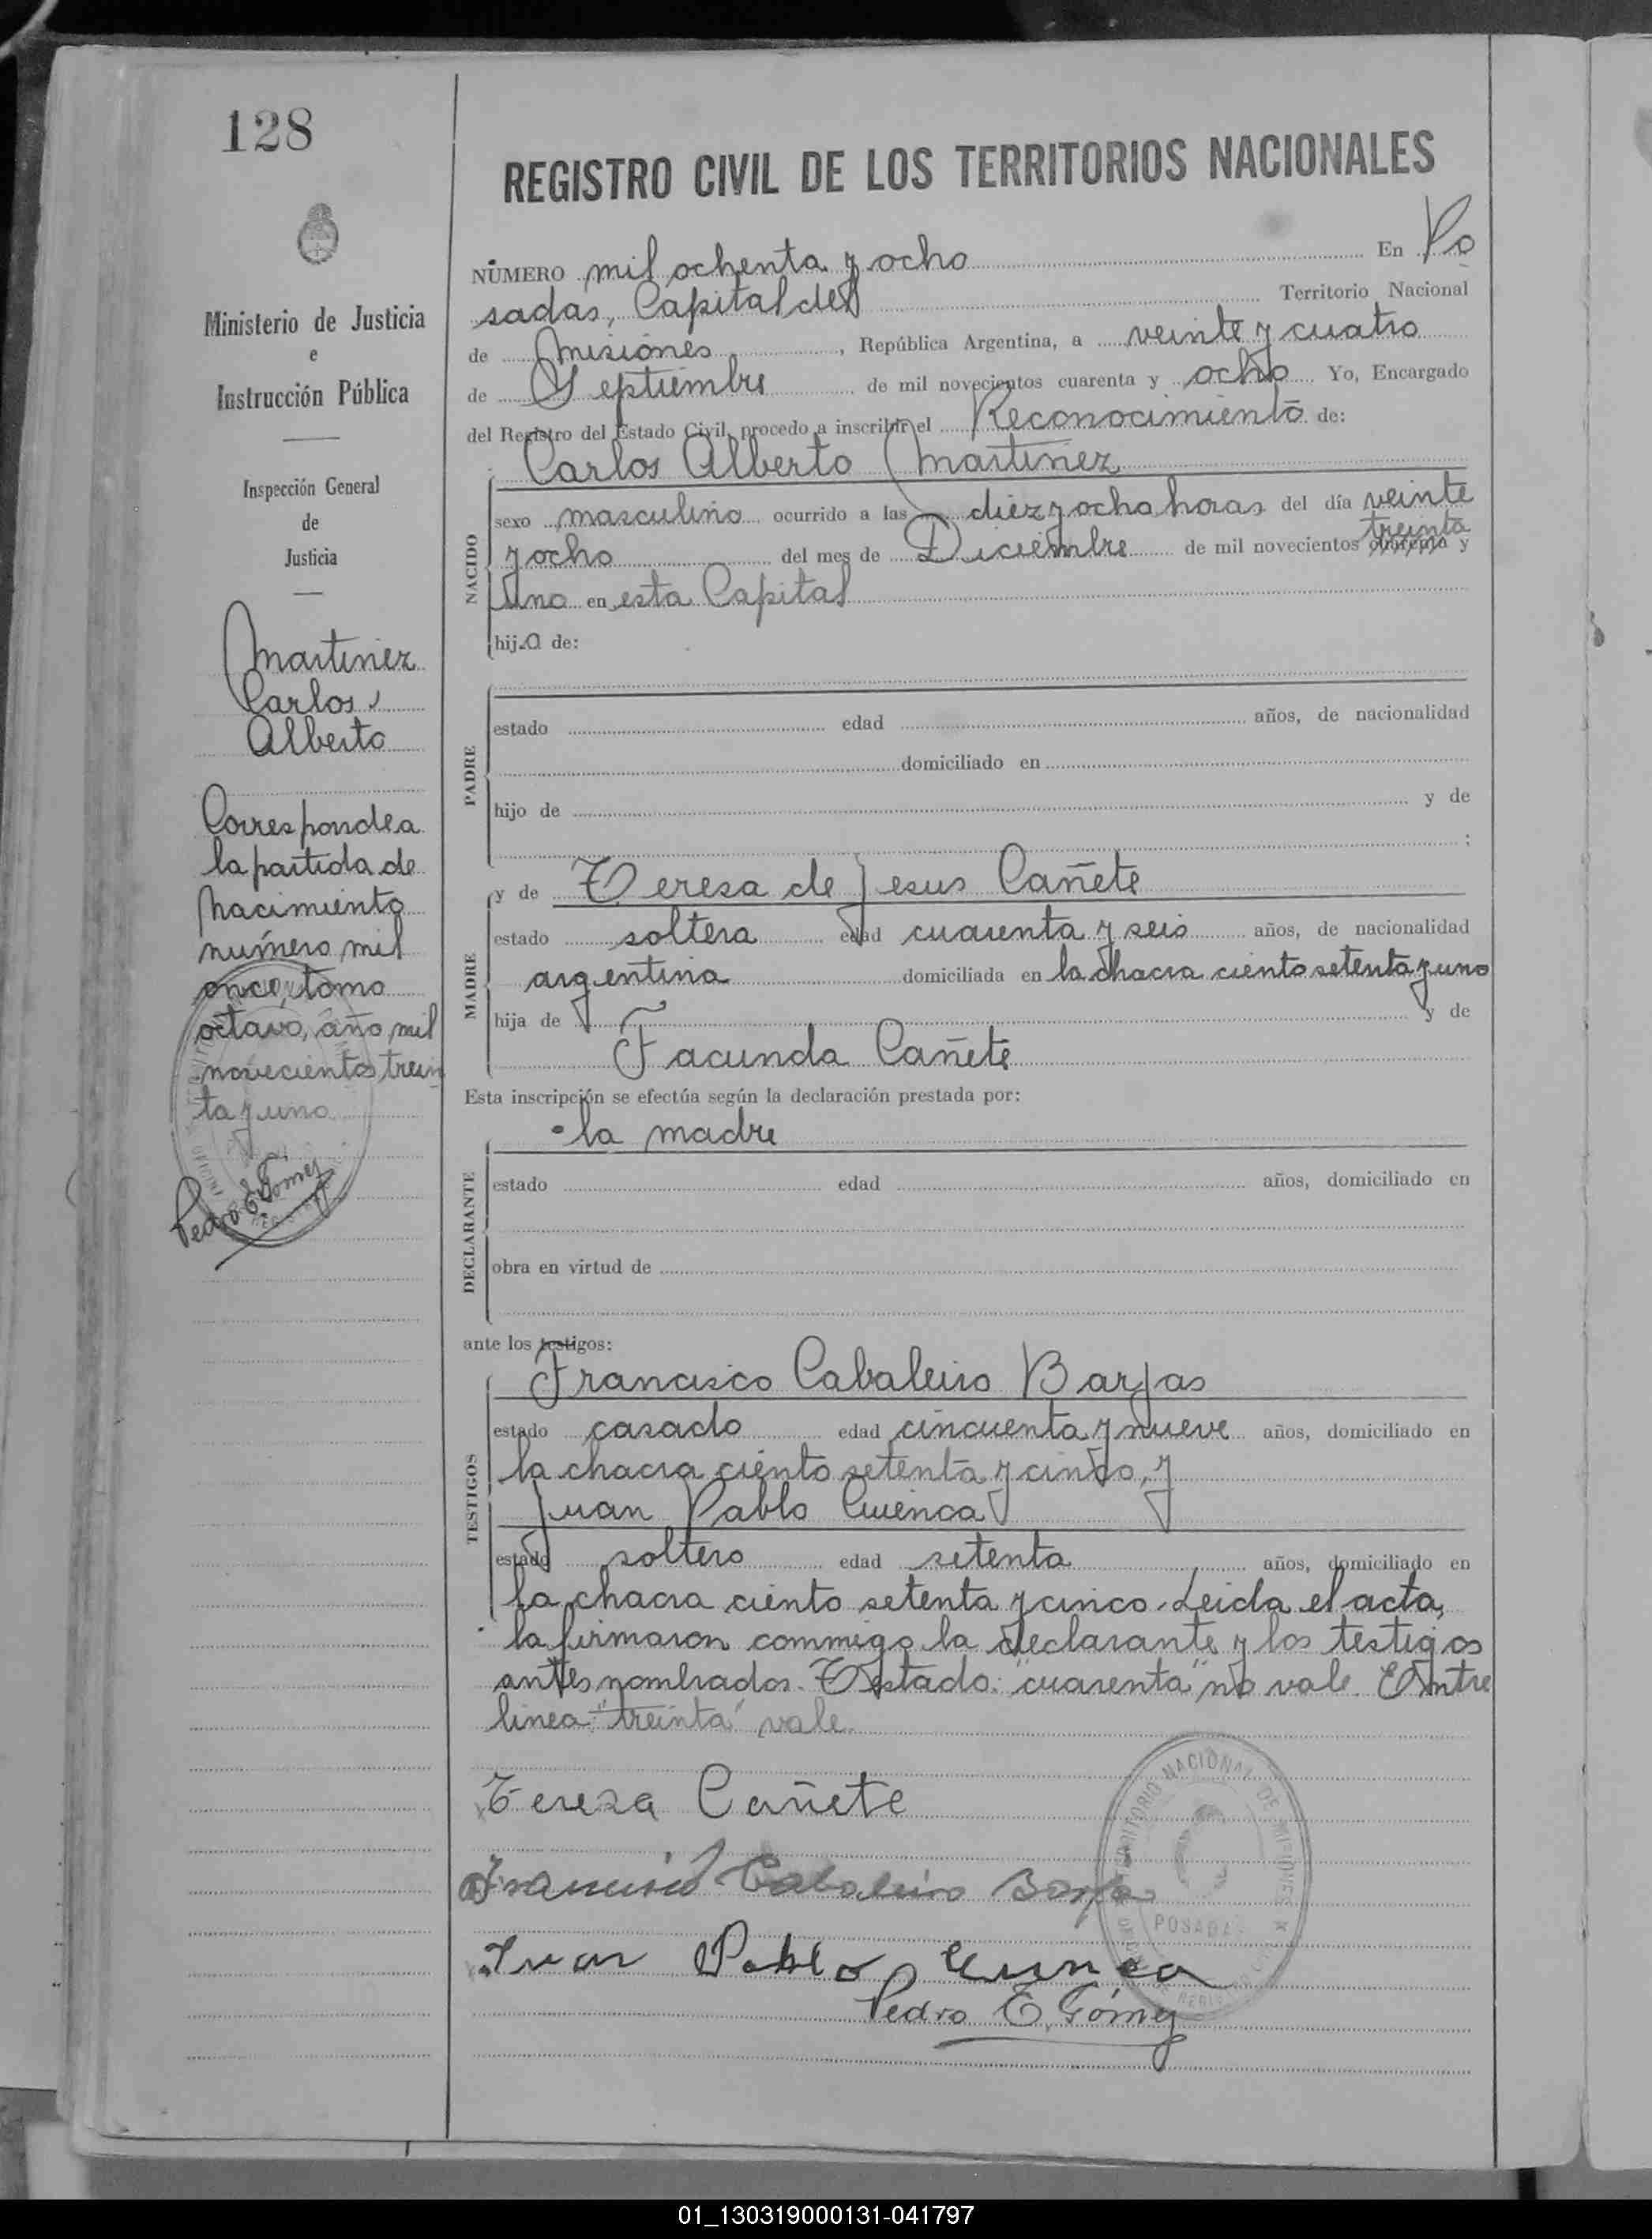 128
Ministerio de Justicia
e
Instrucción Pública
Inspección General
de
Justicia
Martinez
Carlos
Alberto
Corresponde a
la partida de
nacimiento
número mil
once, tomo
octavo, año mil
novecientos trein
ta y uno
Pedro E. Gómez
REGISTRO CIVIL DE LOS TERRITORIOS NACIONALES
NÚMERO mil ochenta y ocho En Po
sadas, Capital del Territorio Nacional
de Misiones, República Argentina, a veinte y cuatro
de Septiembre de mil novecientos cuarenta y ocho Yo, Encargado
del Registro del Estado Civil, procedo a inscribir el Reconocimiento de:
Carlos Alberto Martinez
NACIDO
sexo masculino ocurrido a las diez y ocho horas del día veinte
treinta
y ocho del mes de Diciembre de mil novecientos cuarenta y
uno en esta Capital
hijo de:
PADRE
estado edad años, de nacionalidad
domiciliado en
hijo de y de
;
MADRE
y de Teresa de Jesus Cañete
estado soltera edad cuarenta y seis años, de nacionalidad
argentina domiciliada en la chacra ciento setenta y uno
hija de y de
Facunda Cañete
Esta inscripción se efectúa según la declaración prestada por:
la madre
DECLARANTE
estado edad años, domiciliado en
obra en virtud de
ante los testigos:
TESTIGOS
Francisco Cabaleiro Barjas
estado casado edad cincuenta y nueve años, domiciliado en
la chacra ciento setenta y cinco, y
Juan Pablo Cuenca
estado soltero edad setenta años, domiciliado en
la chacra ciento setenta y cinco. Leida el acta,
la firmaron commigo la declarante y los testigos
antes nombrados. Testado: "cuarenta" no vale. Entre
linea: "treinta" vale.
Teresa Cañete
Francisco Cabaleiro Barjas
Juan Pablo Cuenca
Pedro E. Gómez
TERRITORIO NACIONAL DE MISIONES
POSADAS
01_130319000131-041797